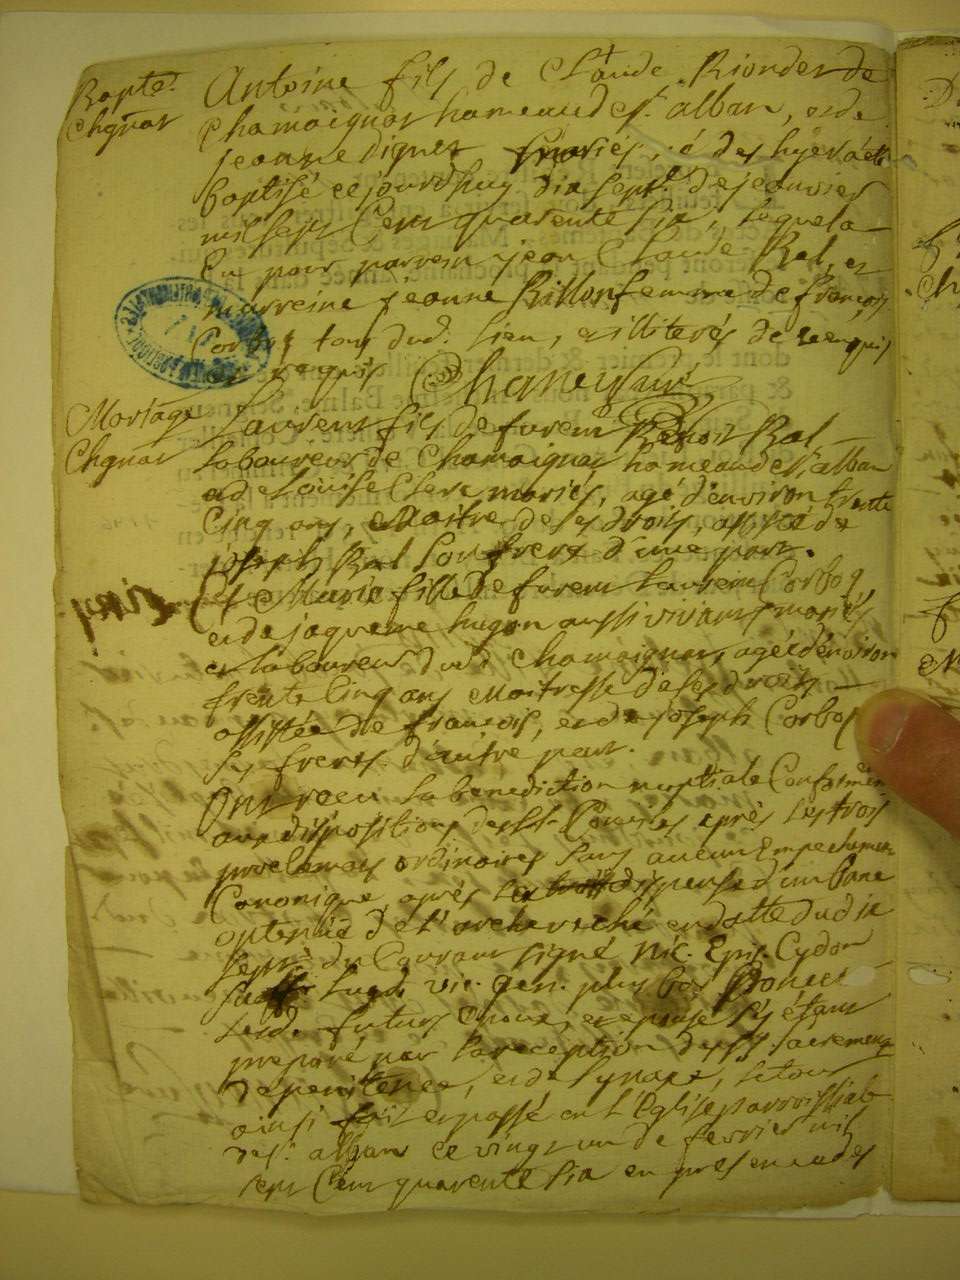 Bapte.
Chgnas
Antoine fils de Claude Riondet de
Chamaignas hameau de St. alban, et de
jeanne diguet mariés, né des hyer a été
baptisé ce jourdhuy dix sept. de jeanvier
mil sept Cent quarente six, lequel a
Eu pour parrein jean Claude Ral, et
marreine jeanne Billon femme de françois
Corboz tous dud. lieu, et illiterés de ce enquis
et requis
Mariage
Chgnas
Laurent fils de fureut Benoit Ral
laboureur de Chamaignas hameau de St. alban
et de Louise Clerc mariés, agé d'environ trente
Cinq ans, Maitre de ses droits, assisté de
joseph Ral son frere d'une part.
et Marie fille de fureut Laurein Corboz
et de jaqueme hugon aussi vivants mariés
et laboureur dudi Chamaignas, agée d'environ
trente Cinq ans Maitresse de ses droits
assistée de françois, et de joseph Corboz
ses freres d'autre part.
Ont reçu la benediction nuptiale Conformem
aux dispositions des Sts. Conciles après les trois
proclamats ordinaires sans aucun Empechemen
Canonique, après dispense d'un bane
optenüe de l'archeveché en datte du dix
sept du Courant signé Nic. Epis. Cydon
suff. Lugd. vic. gen. plus bas
lesd. futurs Epoux, et epouse s'y étant
preparé par la reception des Sts. Sacremens
de penitence, et de Synaxe, le tout
ainsi fait et passé en l'Eglise parroissiale
de St. alban ce vingt un de fevrier mil
sept Cent quarente six en presence des